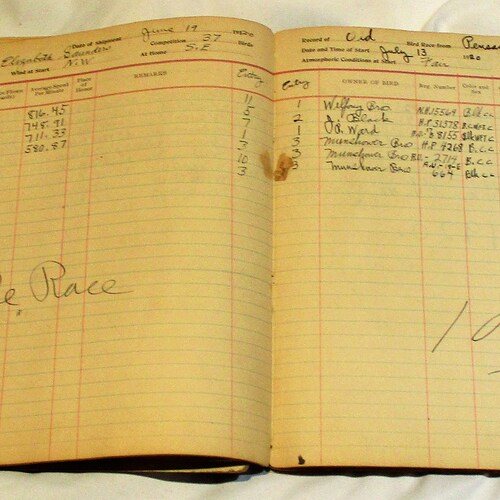 Date of Shipment June 19 1920
Elizabeth Saunders Competition 37 Birds
Wind at Start N.W. At Home S.E.
Average Speed Per Minute
Place at Home
REMARKS
Entry
816.45
748.91
711.33
580.87
11
5
7
1
3
10
3
e Race
Record of Old Bird Race from Pensa
Date and Time of Start July 13 1920
Atmospheric Conditions at Start Fair
Entry OWNER OF BIRD Reg. Number Color and Sex
1 Welfong Bro Blk cc
2 J. Black H.P. 31578
1 J.L. Ward 8155
3 Munshower Bro H.P. 4268 B.C.C
3 Munshower Bro 2714 B.C.C
3 Munshower Bro 664 Blk cc